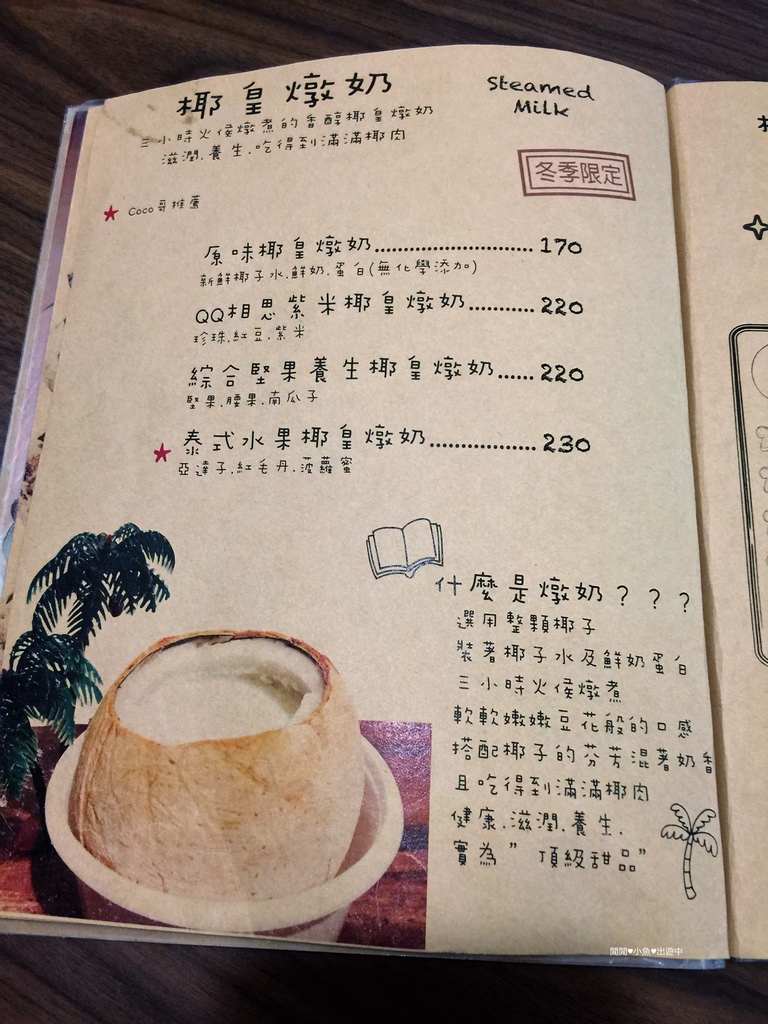 椰皇燉奶
Steamed
Milk
三小時火侯燉煮的香醇椰皇燉奶
滋潤.養生.吃得到滿滿椰肉
冬季限定
★ Coco哥推薦
原味椰皇燉奶........................... 170
新鮮椰子水.鮮奶.蛋白(無化學添加)
QQ相思紫米椰皇燉奶........... 220
珍珠.紅豆.紫米
綜合堅果養生椰皇燉奶...... 220
堅果.腰果.南瓜子
★ 泰式水果椰皇燉奶.................. 230
亞達子.紅毛丹.菠蘿蜜
什麼是燉奶？？？
選用整顆椰子
裝著椰子水及鮮奶蛋白
三小時火侯燉煮
軟軟嫩嫩豆花般的口感
搭配椰子的芬芳混著奶香
且吃得到滿滿椰肉
健康.滋潤.養生.
實為”頂級甜品”
閒閒♥小魚♥出遊中